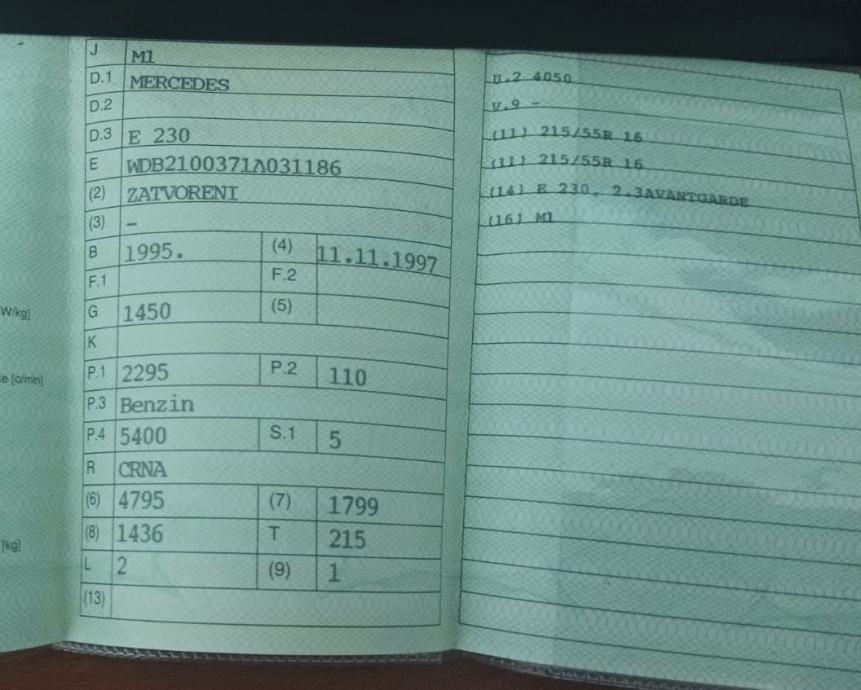 J M1
D.1 MERCEDES
D.2
D.3 E 230
E WDB2100371A031186
(2) ZATVORENI
(3) –
B 1995. (4) 11.11.1997
F.1 F.2
W/kg]
G 1450 (5)
K
P.1 2295 P.2 110
e [o/min]
P.3 Benzin
P.4 5400 S.1 5
R CRNA
(6) 4795 (7) 1799
(8) 1436 T 215
[kg]
L 2 (9) 1
(13)
U.2 4050
V.9 –
(11) 215/55R 16
(11) 215/55R 16
(14) E 230, 2.3AVANTGARDE
(16) M1